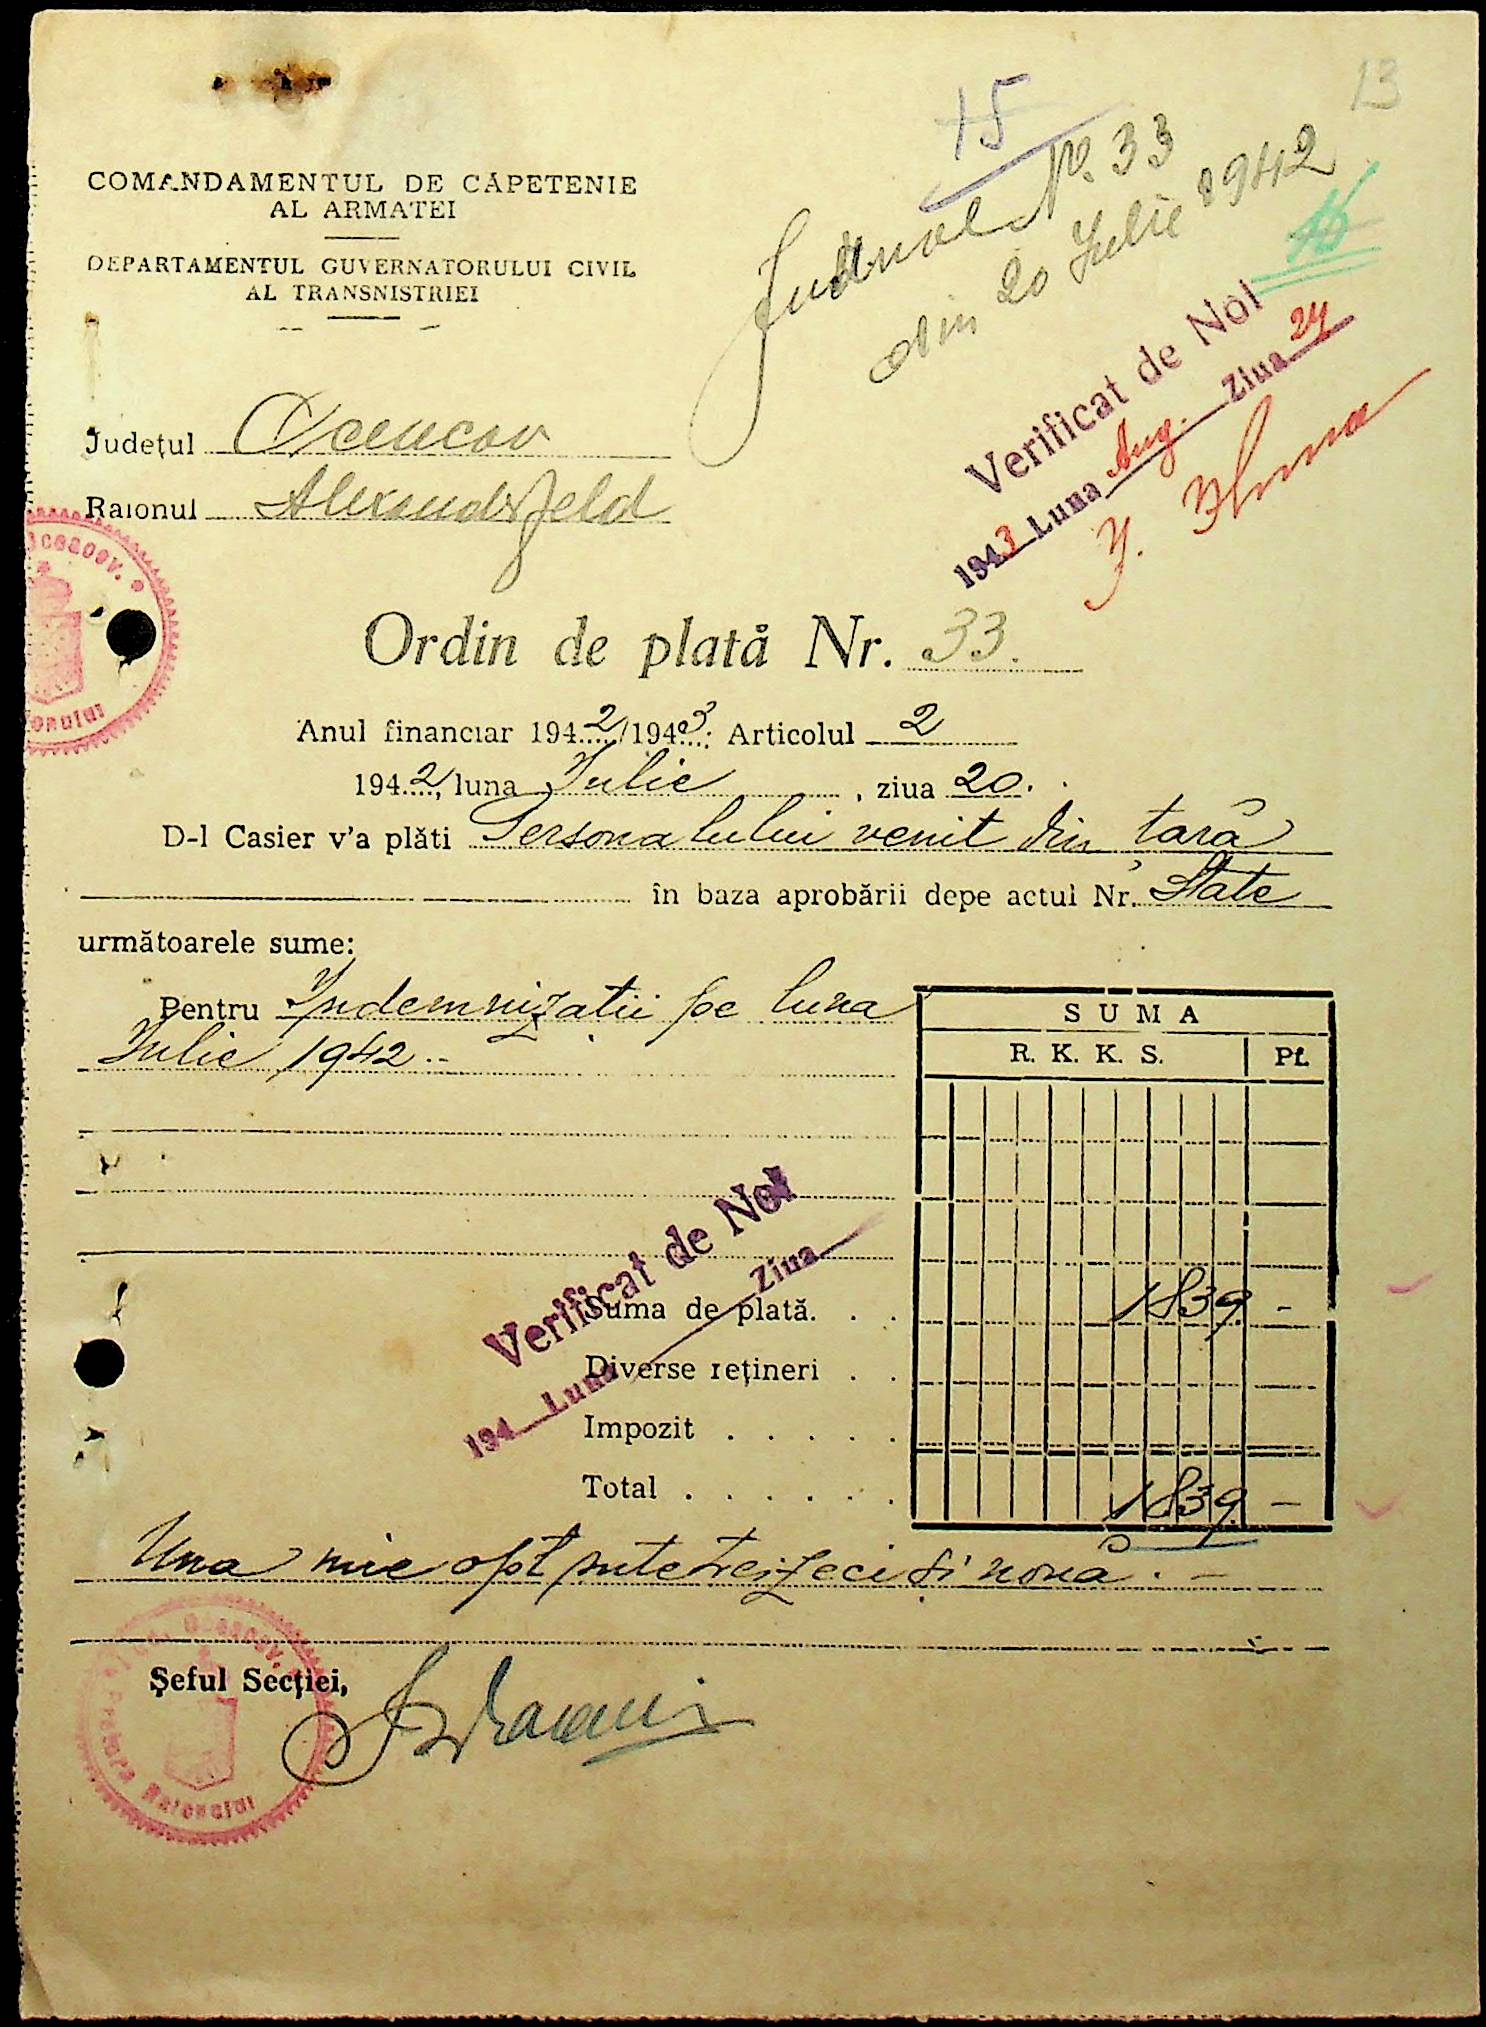 13
15
Jurnal No. 33
din 20 Iulie 1942
16
COMANDAMENTUL DE CĂPETENIE
AL ARMATEI
DEPARTAMENTUL GUVERNATORULUI CIVIL
AL TRANSNISTRIEI
Verificat de Noi
1943 Luna Aug. Ziua 24
Județul Oceacov
Raionul Alexanderfeld
Ordin de plată Nr. 33.
Anul financiar 1942/1943: Articolul 2
1942, luna Iulie, ziua 20.
D-l Casier v'a plăti Personalului venit din țară
în baza aprobării depe actul Nr. State
următoarele sume:
Pentru Indemnizații pe luna
Iulie 1942..
SUMA
R. K. K. S. Pf.
Verificat de Noi
194 Luna Ziua
Suma de plată. . . 1839 -
Diverse rețineri . .
Impozit . . . . .
Total . . . . . . 1839 -
Una mie opt sute treizeci și nouă . -
Șeful Secției,
Pretura Raionului